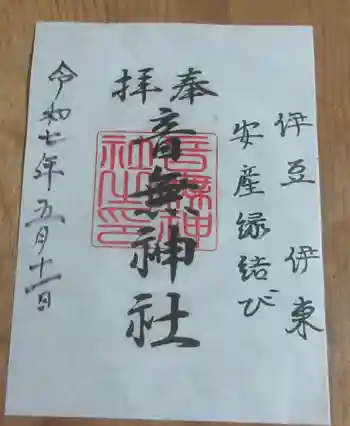 伊豆 伊東
安産縁結び
奉拝
音無神社
音無神社之印
令和七年五月十一日